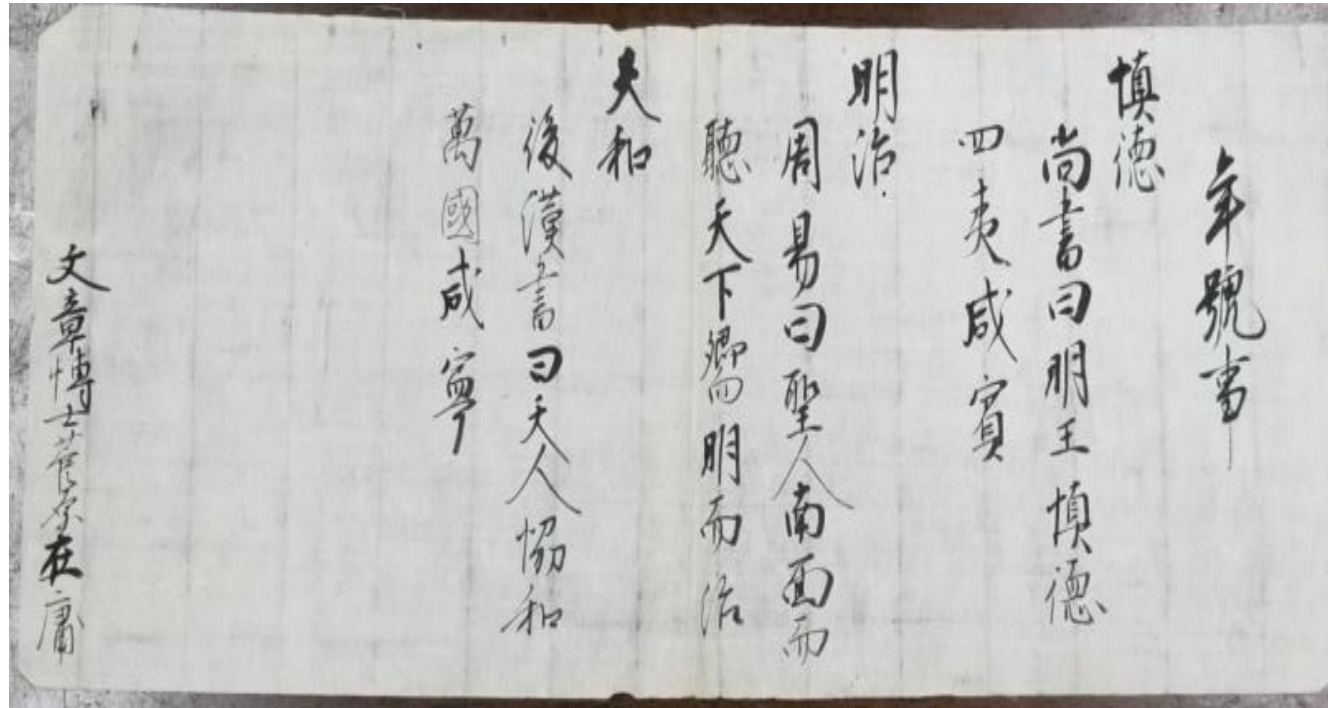 年號事
慎徳
尚書曰明王慎徳
四夷咸賓
明治
周易曰聖人南面而
聽天下嚮明而治
天和
後漢書曰天人恊和
萬國咸寧
文章博士菅原在庸